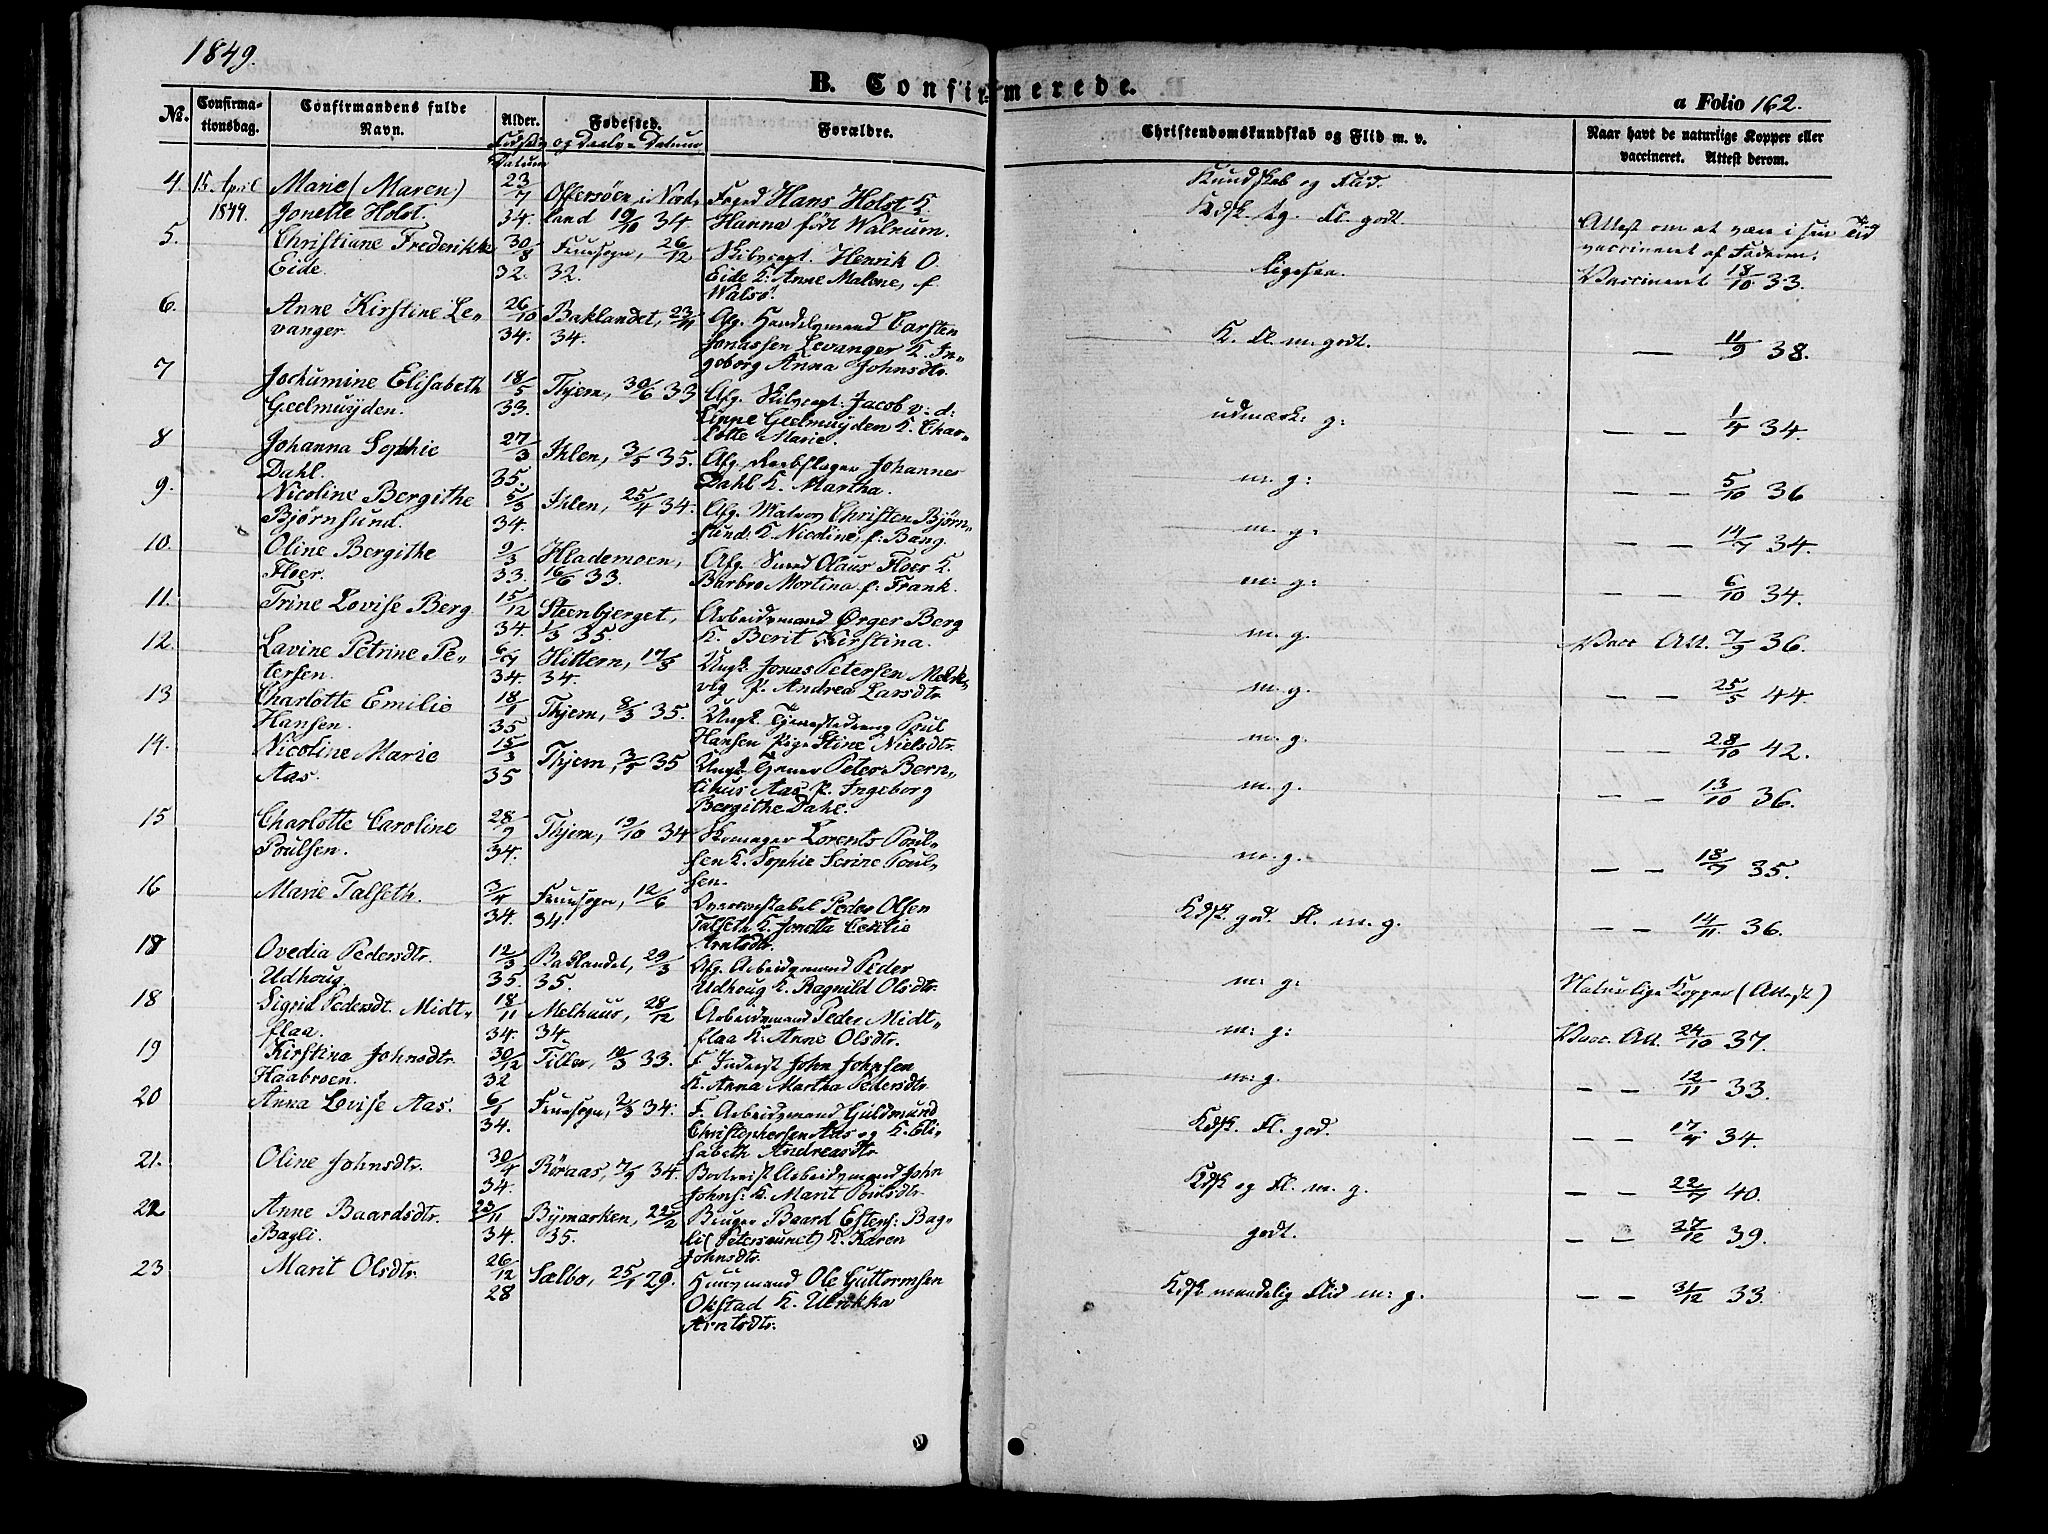 1849.
B. Confirmerede.
a Folio 162.
No. Confirmationsdag. Confirmandens fulde Navn. Alder. Fødested. Forældre. Christendomskundskab og Flid m. v. Naar havt de naturlige Kopper eller vaccineret. Attest derom.
Fødsels og Daabs-Datum
Datum
4. 15 April Marie (Maren) 23/7 Offersöen i Nord- Foged Hans Holst K Kundskab og Flid.
1849. Jonette Holst. 34. land 19/10 34. Hanna født Walnum. Kdsk. og Fl. godt. Attest om at være i sin Tid vaccineret af Faderen.
5. Christiane Frederikke 30/8 Fruesogn, 26/12 Skibscapt. Henrik O
Eide. 32. 32. Eide K. Anne Malene, f. Walsø. Ligesaa. Vaccineret 18/10 33.
6. Anne Kirstine Le- 26/10 Baklandet, 23/11 Afg. Handelsmand Carsten
vanger. 34. 34. Jonassen Levanger K. In- K. Fl. m. godt. — 11/9 38.
goborg Anna Johnsdtr.
7 Jochumine Elisabeth 18/5 Thjem, 30/6 33 Afg. Skibscapt. Jacob v. d.
Geelmuyden. 33. Lippe Geelmuyden K. Char- udmærk: g: — — 1/4 34.
lotte Marie.
8 Johanna Sophie 27/3 Ihlen, 3/5 35. Afg. Reebslager Johannes
Dahl. 35. Dahl K. Martha. m. g: — — 5/10 36
9. Nicoline Bergithe 5/3 Ihlen, 25/4 34. Afg. Matros Christen Bjørn-
Bjørnsund. 34. sund. K. Nicoline, f. Bang. m. g: — — 14/7 34.
10. Oline Bergithe 9/3 Hlademoen, Afg. Smed Olaus Floer K.
Floer. 33. 16/6 33. Barbro Mortina f. Frank. m: g: — — 6/10 34.
11. Trine Lovise Berg. 15/12 Steenbjerget, Arbeidsmand Ørger Berg
34. 1/3 35. K. Berit Kirstina. m. g. Vacc. Att. 7/9 36.
12. Lavine Petrine Pe- 6/7 Hittern, 17/3 Ungk. Jonas Petersen
tersen. 34. 34. P. Andrea Larsdtr. m. g. — — 25/5 44.
13 Charlotte Emilie 18/1 Thjem, 8/3 35. Ungk. Poul
Hansen. 35 Hansen Pige Stine Nielsdtr. m. g. — — 28/10 42.
14. Nicoline Marie 15/3 Thjem, 3/5 35 Ungk. Peter Bern-
Aas. 35 tinus Aas, P. Ingeborg m. g. — — 13/10 36.
Bergithe Dahl.
15 Charlotte Caroline 28/9 Thjem, 19/10 34 Skomager Lorents Poul-
Poulsen. 34. sen K. Sophie Serine Poul- m. g. — — 18/7 35.
sen.
16 Marie Talseth. 3/4 Fruesogn, 12/6 Overconstabel Peder Olsen
34. 34. Talseth K. Jonetta Cecilie Kdsk. god. Fl. m. g. — — 14/11 36.
Arntsdtr.
18 Ovedia Pedersdtr. 12/3 Baklandet, 29/3 Afg. Arbeidsmand Peder
Udhoug. 35. 35. Udhoug K. Ragnild Olsdtr. m: g: Naturlige Kopper (Attest)
18 Sigrid Pedersdt. Midt- 18/11 Melhuus, 28/12 Arbeidsmand Peder Midt-
flaa. 34. 34. flaa K. Anne Olsdtr. m: g: Vacc. Att. 24/10 37.
19 Kirstina Johnsdtr. 30/12 Tiller, 10/3 33. F. Inderst John Johnsen
Haabroen. 32 K. Anna Martha Pedersdtr. m: g. — — 12/11 33.
20 Anna Lovise Aas. 6/1 Fruesogn, 2/3 34. F. Arbeidsmand Guldmund
34. Christophersen Aas og K. Eli- Kdsk. Fl. god. — — 34.
sabeth Andreasdtr.
21. Oline Johnsdtr. 30/4 Röraas, 7/9 34. Arbeidsmand John
34. Johns: K. Marit Poulsdtr. Kdsk og Fl. m. g. — — 22/7 40.
22 Anne Baardsdtr. 23/11 Bymarken, 22/2 Bruger Baard Estens: Bag-
Bagli. 34. 35. li K. Karen godt. — — 27/12 39.
Johnsdtr.
23 Marit Olsdtr. 26/12 Sælbo, 25/1 29. Huusmand Ole Guttormsen
28 Okstad K. Ulrikka Kdsk maadelig Flid m: g. — — 31/12 33.
Arntsdtr.